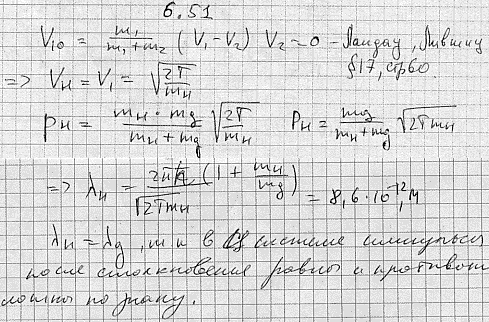 6.51
V₁₀ = m₁/(m₁+m₂) (V₁ - V₂) V₂ = 0 - Ландау, Лившиц
§17, стр 60
=> V_н = V₁ = √(2T/m_н)
p_н = (m_н · m_д)/(m_н + m_д) √(2T/m_н) p_н = m_д/(m_н + m_д) √(2T m_н)
=> λ_н = 2πħ/√(2T m_н) (1 + m_н/m_д) = 8,6 · 10⁻¹² м
λ_н = λ_д, т.к в системе импульсы
после столкновения равны и противопо
ложны по знаку.